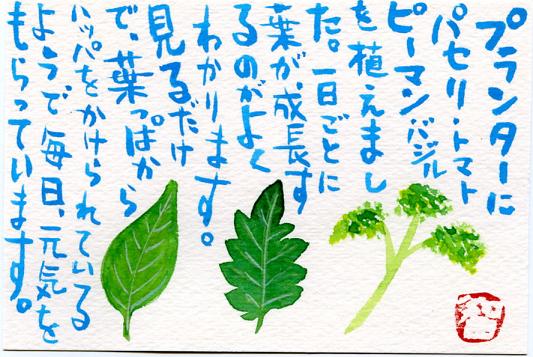 プランターに
パセリ・トマト
ピーマンバジル
を植えまし
た。一日ごとに
葉が、成長す
るのがよく
わかります。
見るだけ
で、葉っぱから
ハッパをかけられている
ようで毎日、元気を
もらっています。